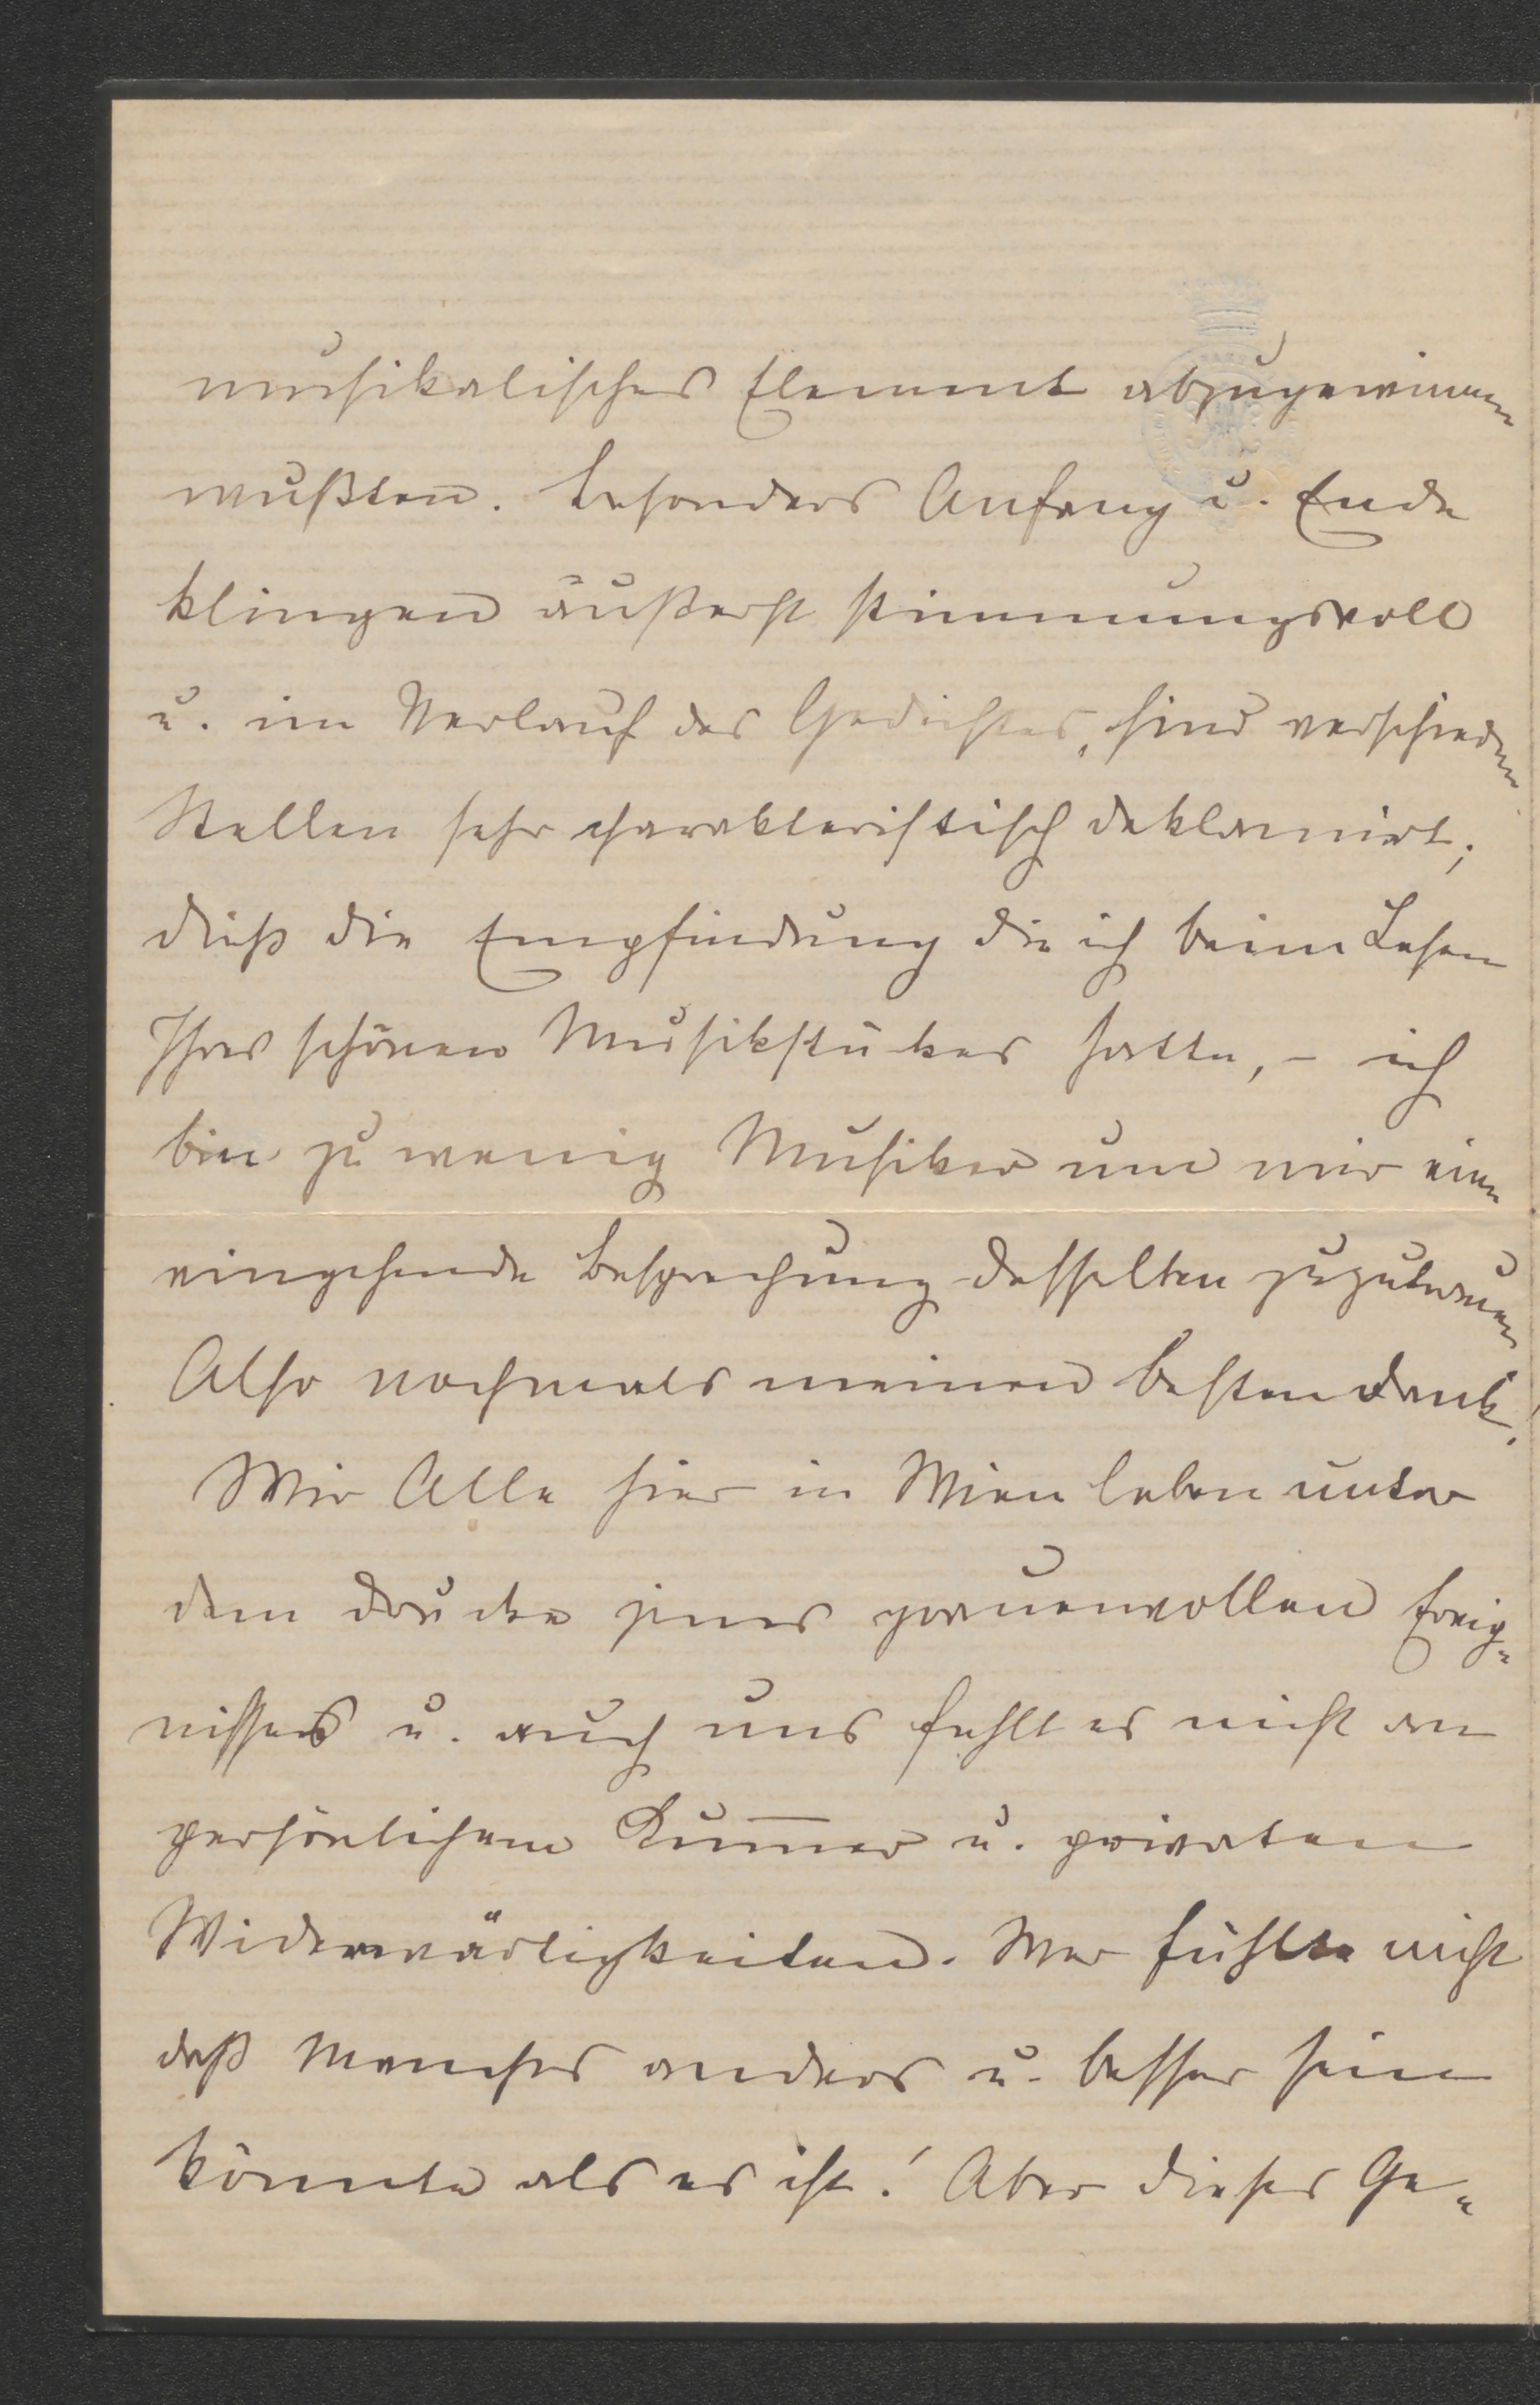 musikalisches Element abzugewinnen
wußten. Besonders Anfang u. Ende
klingen äußerst stimmungsvoll
u. im Verlauf des Gedichtes, sind verschieden
Stellen sehr charakteristisch deklamirt;
dieß die Empfindung die ich beim Lesen
Ihres schönen Musikstückes hatte, – ich
bin zu wenig Musiker um mir eine
eingehende Besprechung desselben zuzutrauen
Also nochmals meinen besten Dank!
Wir Alle hier in Wien leben unter
dem Drucke jenes grauenvollen Ereig=
nisses u. auch uns fehlt es nicht an
persönlichem Kum̅er u. privaten
Widerwärtigkeiten. Wer fühlte nicht
daß Manches anders u. besser sein
könnte als es ist! Aber dieses Ge=